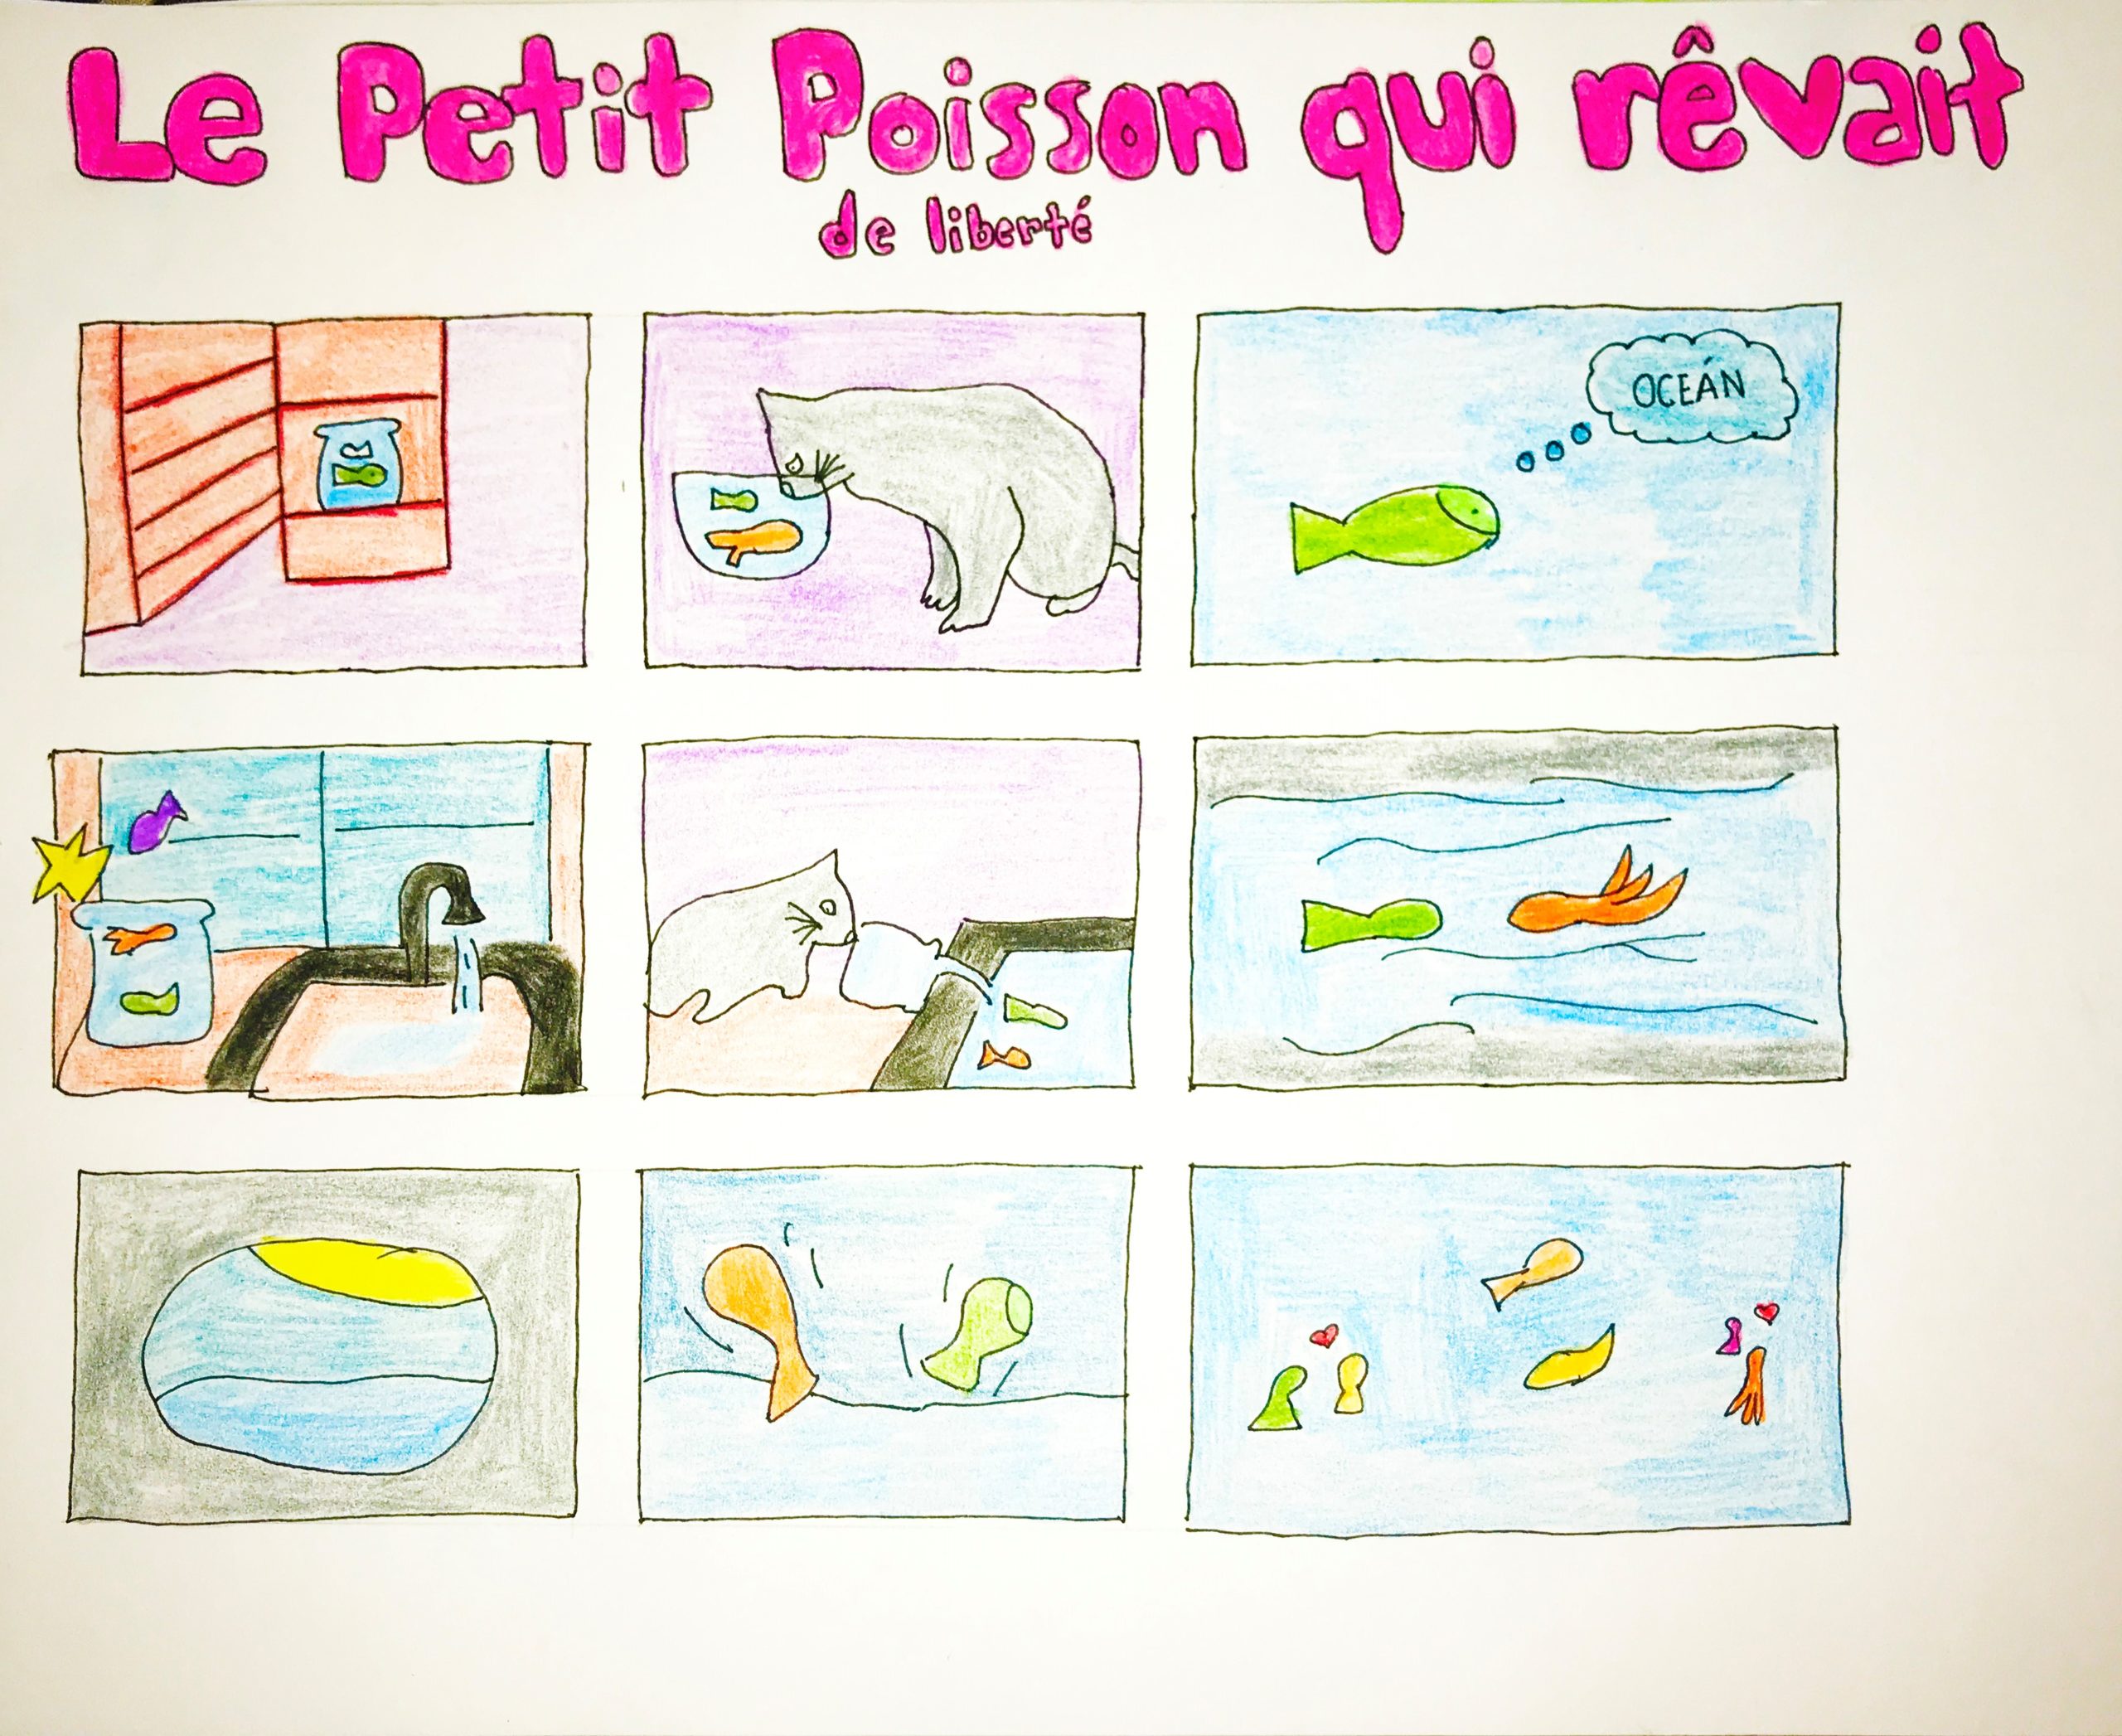 Le Petit Poisson qui rêvait
de liberté
OCEÁN